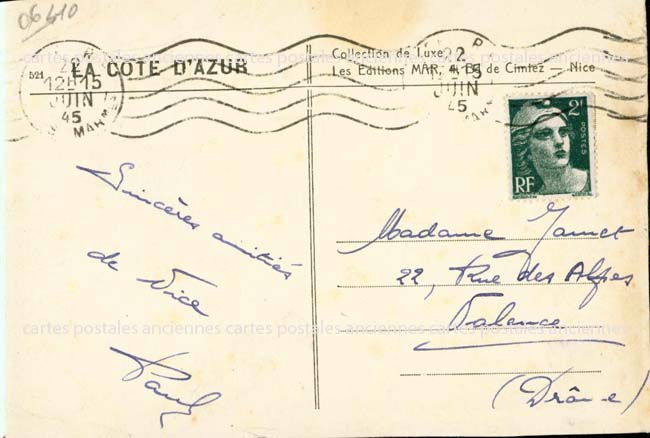 06410
521
LA COTE D'AZUR
Collection de Luxe
Les Editions MAR, 41, Bd de Cimiez — Nice
22
12H15
JUIN
45
22
JUIN
45
2F
POSTES
RF
Sincères amitiés
de Nice
Paul
Madame Jamet
22, Rue des Alpes
Valence
(Drôme)
cartes postales anciennes cartes postales anciennes cartes postales anciennes
cartes postales anciennes cartes postales anciennes cartes postales anciennes